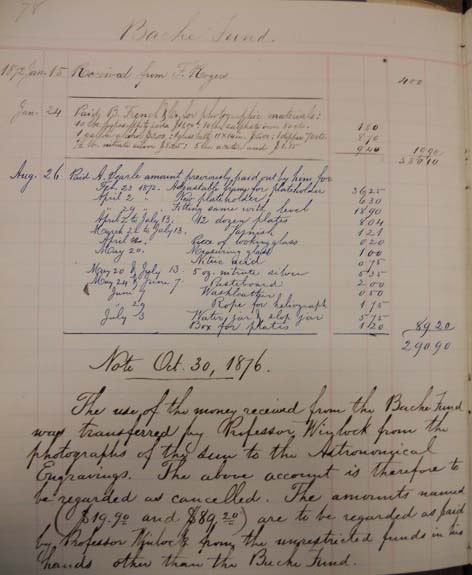 78
Bache Fund.
1872 Jan. 15 Received from F. Rogers 400
Jan. 24 Paid B. French & Co. for photographic materials:
1 gallon alcohol
1.80
8.70
9.40 19.90
380.10
Aug. 26 Paid A. Searle amount previously paid out by him for
Feb. 23 1872. Adjustable frame for plateholder 36.25
April 2 " New plateholder 6.30
" 29 " Fitting same with level 18.90
April 2 to July 13. 12 dozen plates 8.04
March 22 to July 13. Varnish 1.21
April Piece of looking glass 0.20
May 20. Measuring glass 1.00
" Nitric acid 0.75
May 20 & July 13. 5 oz. nitrate silver 6.35
May 24 & June 7. Pasteboard 2.00
June Washleather
" 29 Rope for helograph 1.75
July 3 Water jar & slop jar 5.75
Box for plates 1.20 89.20
290.90
Note Oct. 30, 1876.
The use of the money received from the Bache Fund
was transferred by Professor Winlock from the
photographs of the sun to the Astronomical
Engravings. The above account is therefore to
be regarded as cancelled. The amounts named
($19.90 and $89.20) are to be regarded as paid
by Professor Winlock from the unrestricted funds in his
hands other than the Bache Fund.